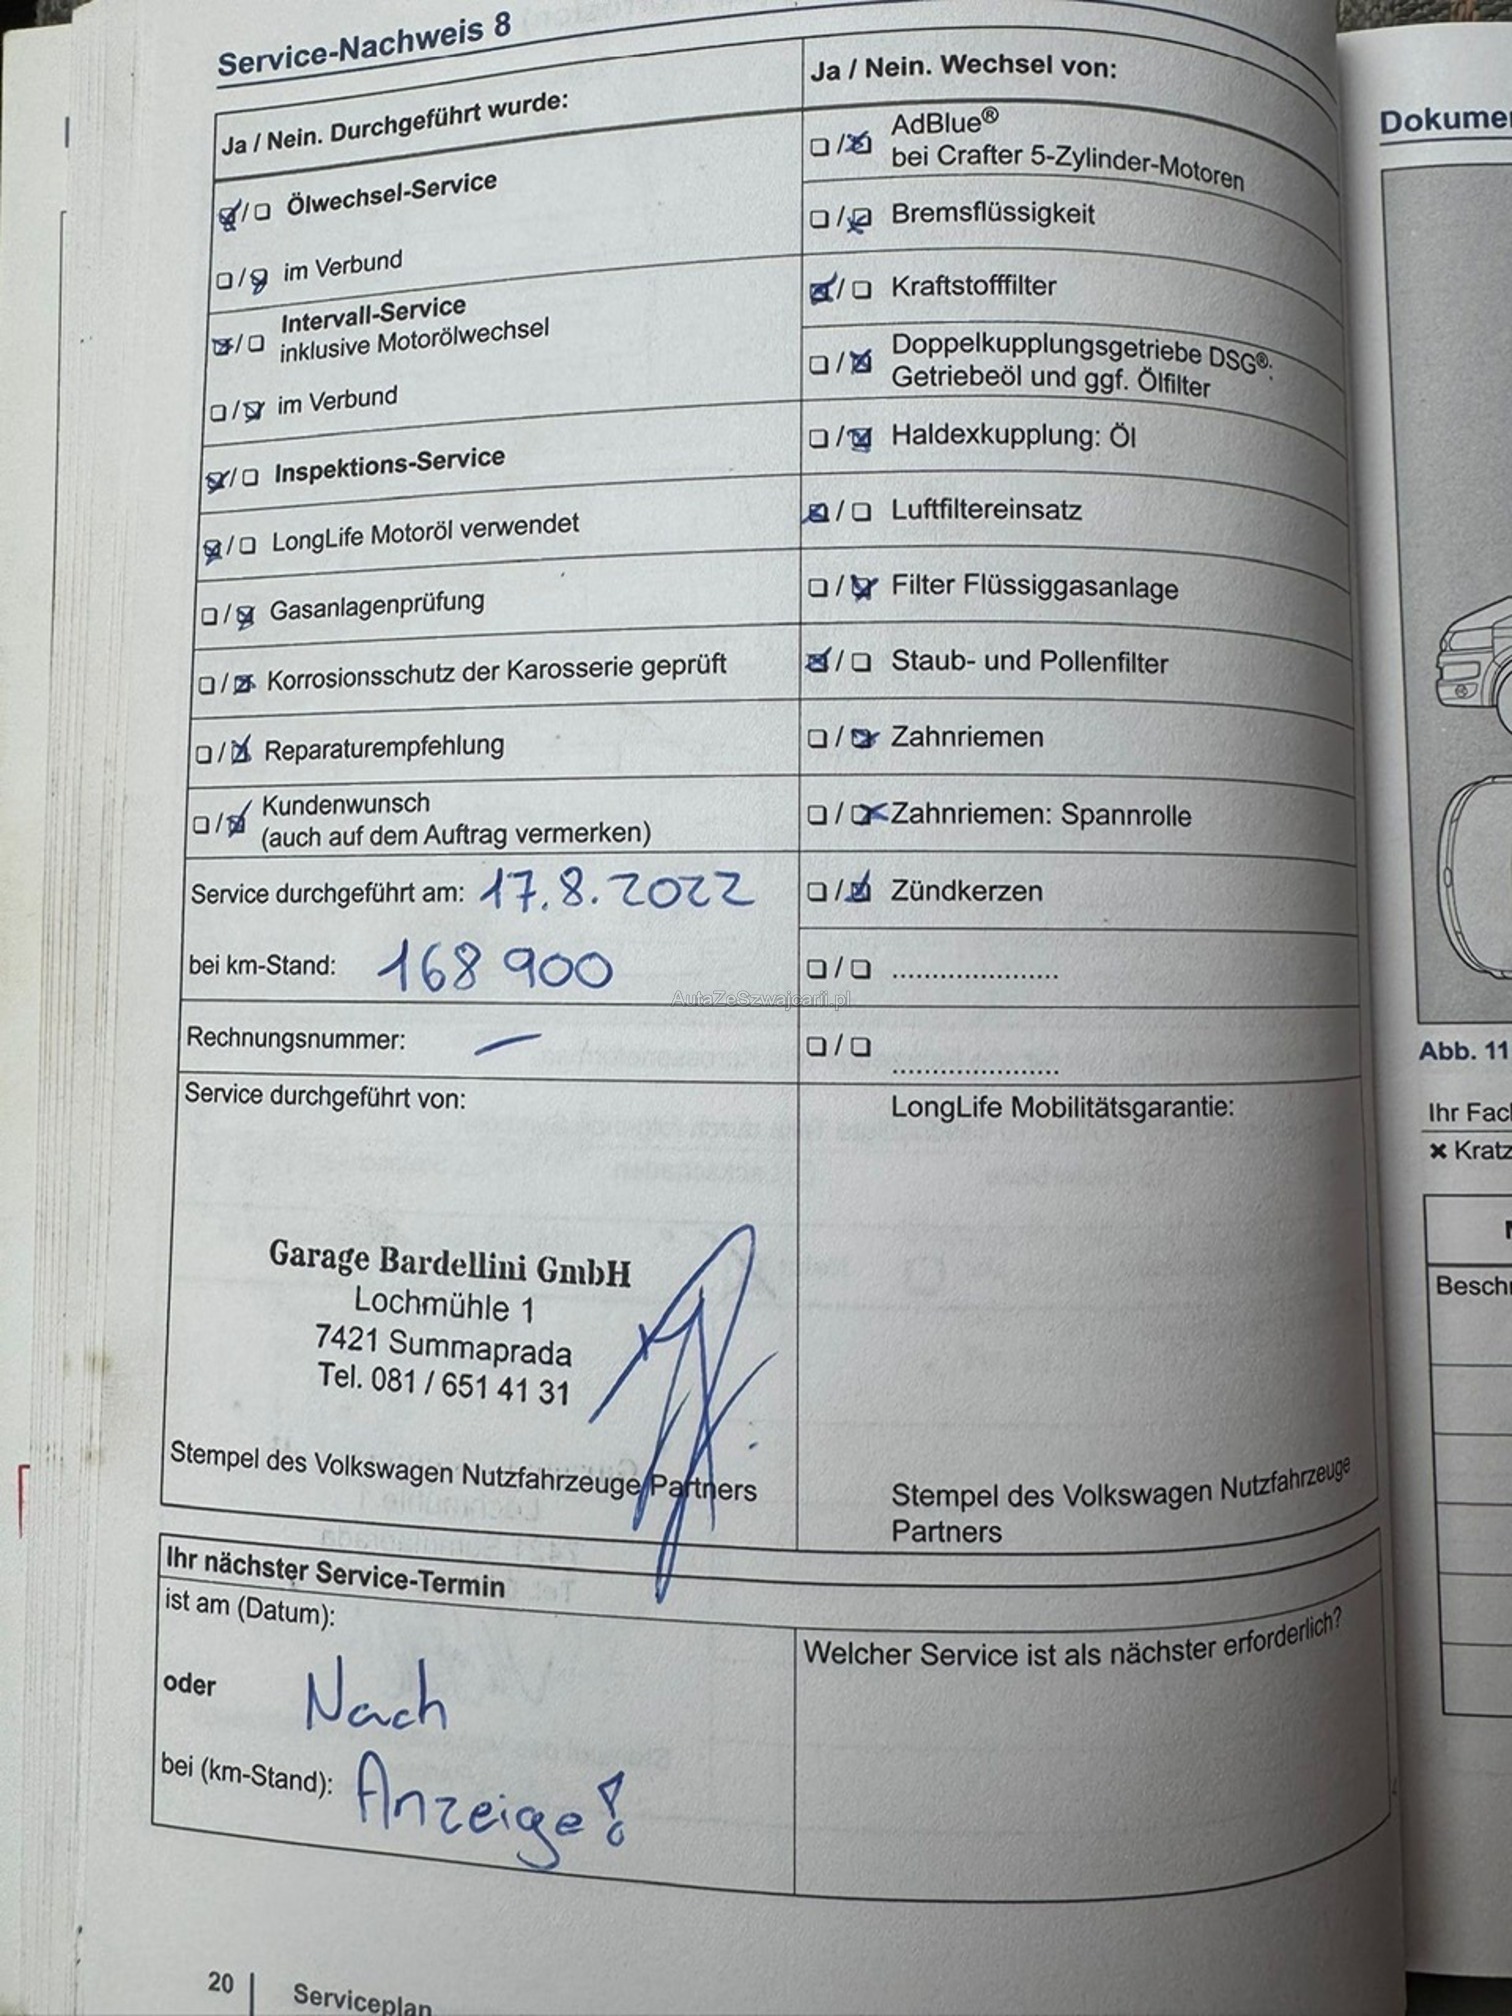 Service-Nachweis 8
Ja / Nein. Durchgeführt wurde:
☒/☐ Ölwechsel-Service
☐/☒ im Verbund
☒/☐ Intervall-Service
inklusive Motorölwechsel
☐/☒ im Verbund
☒/☐ Inspektions-Service
☒/☐ LongLife Motoröl verwendet
☐/☒ Gasanlagenprüfung
☐/☒ Korrosionsschutz der Karosserie geprüft
☐/☒ Reparaturempfehlung
☐/☒ Kundenwunsch
(auch auf dem Auftrag vermerken)
Service durchgeführt am: 17.8.2022
bei km-Stand: 168 900
Rechnungsnummer: —
Service durchgeführt von:
Garage Bardellini GmbH
Lochmühle 1
7421 Summaprada
Tel. 081 / 651 41 31
Stempel des Volkswagen Nutzfahrzeuge Partners
Ja / Nein. Wechsel von:
☐/☒ AdBlue®
bei Crafter 5-Zylinder-Motoren
☐/☒ Bremsflüssigkeit
☒/☐ Kraftstofffilter
☐/☒ Doppelkupplungsgetriebe DSG®:
Getriebeöl und ggf. Ölfilter
☐/☒ Haldexkupplung: Öl
☒/☐ Luftfiltereinsatz
☐/☒ Filter Flüssiggasanlage
☒/☐ Staub- und Pollenfilter
☐/☒ Zahnriemen
☐/☒ Zahnriemen: Spannrolle
☐/☒ Zündkerzen
☐/☐ .....................
☐/☐ .....................
LongLife Mobilitätsgarantie:
Stempel des Volkswagen Nutzfahrzeuge
Partners
Ihr nächster Service-Termin
ist am (Datum):
oder Nach
bei (km-Stand): Anzeige!
Welcher Service ist als nächster erforderlich?
20 | Serviceplan
AutaZeSzwajcarii.pl
Dokume
Abb. 11
Ihr Fac
✖ Kratz
Besch